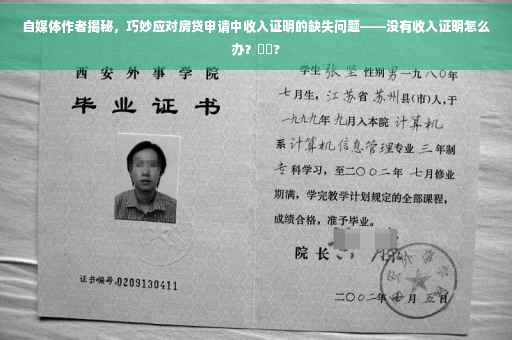 自媒体作者揭秘，巧妙应对房贷申请中收入证明的缺失问题——没有收入证明怎么
办？▯▯？
西安外事学院
毕业证书
证书编号:0209130411
学生 张坚 性别 男 一九八〇年
七月生，江苏省 苏州县(市)人，于
一九九九年 九月入本院 计算机
系 计算机信息管理专业 三年制
专科学习，至二〇〇二年 七月修业
期满，学完教学计划规定的全部课程，
成绩合格，准予毕业。
院长
二〇〇二年 七月 五日